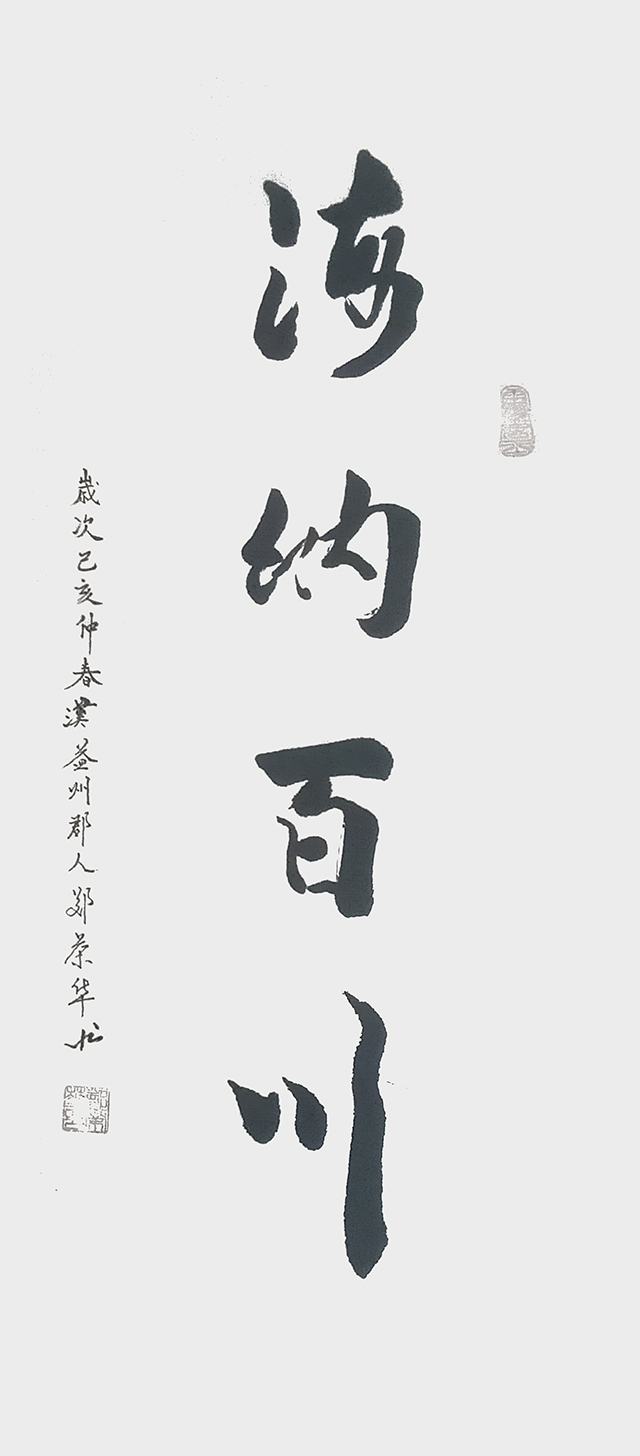 海纳百川
歲次己亥仲春漢益州郡人鄭荣华忙